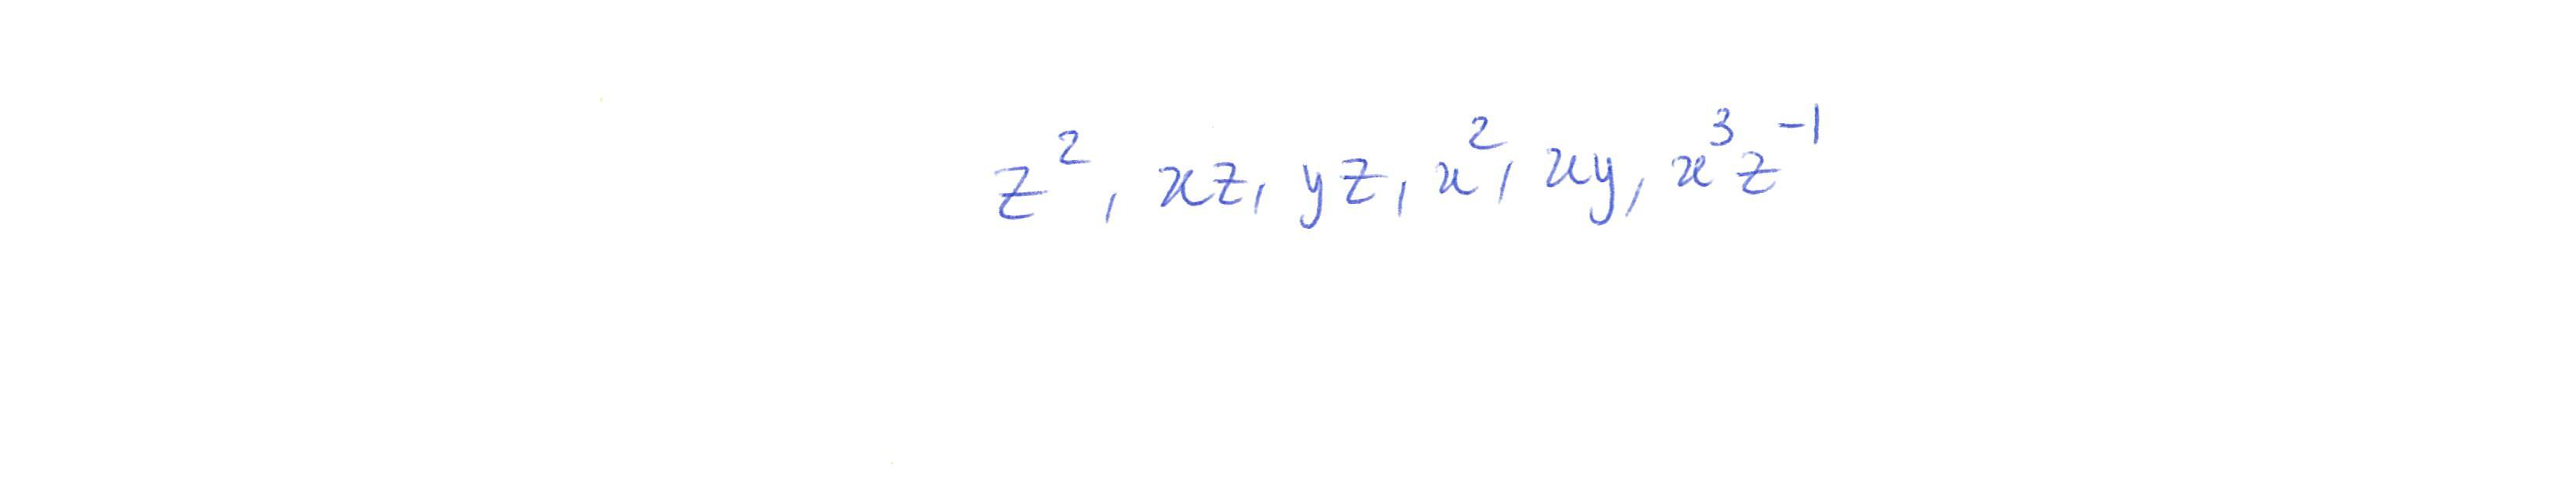 z², xz, yz, x², xy, x³z⁻¹